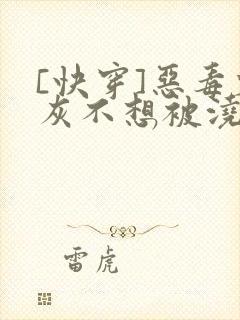 [快穿]惡毒
灰不想被澆
雷虎